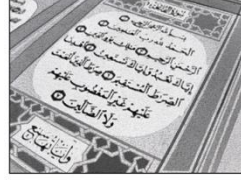 سورة الفاتحة
بسم الله الرحمن الرحيم
الحمد لله رب العلمين
الرحمن الرحيم ملك يوم الدين
إياك نعبد وإياك نستعين اهدنا
الصرط المستقيم صرط الذين أنعمت
عليهم غير المغضوب عليهم
ولا الضالين
وآياتها سبع